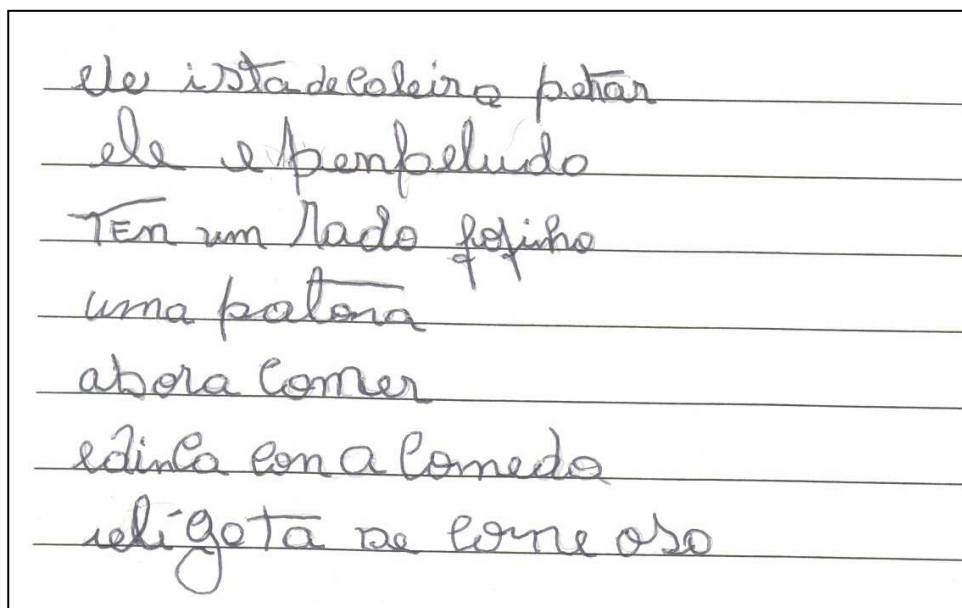 ele ista de coleira petar
ele e penpeludo
TEn um Rado fofinho
uma patona
abora comer
edinca con a comeda
eli gota de come oso